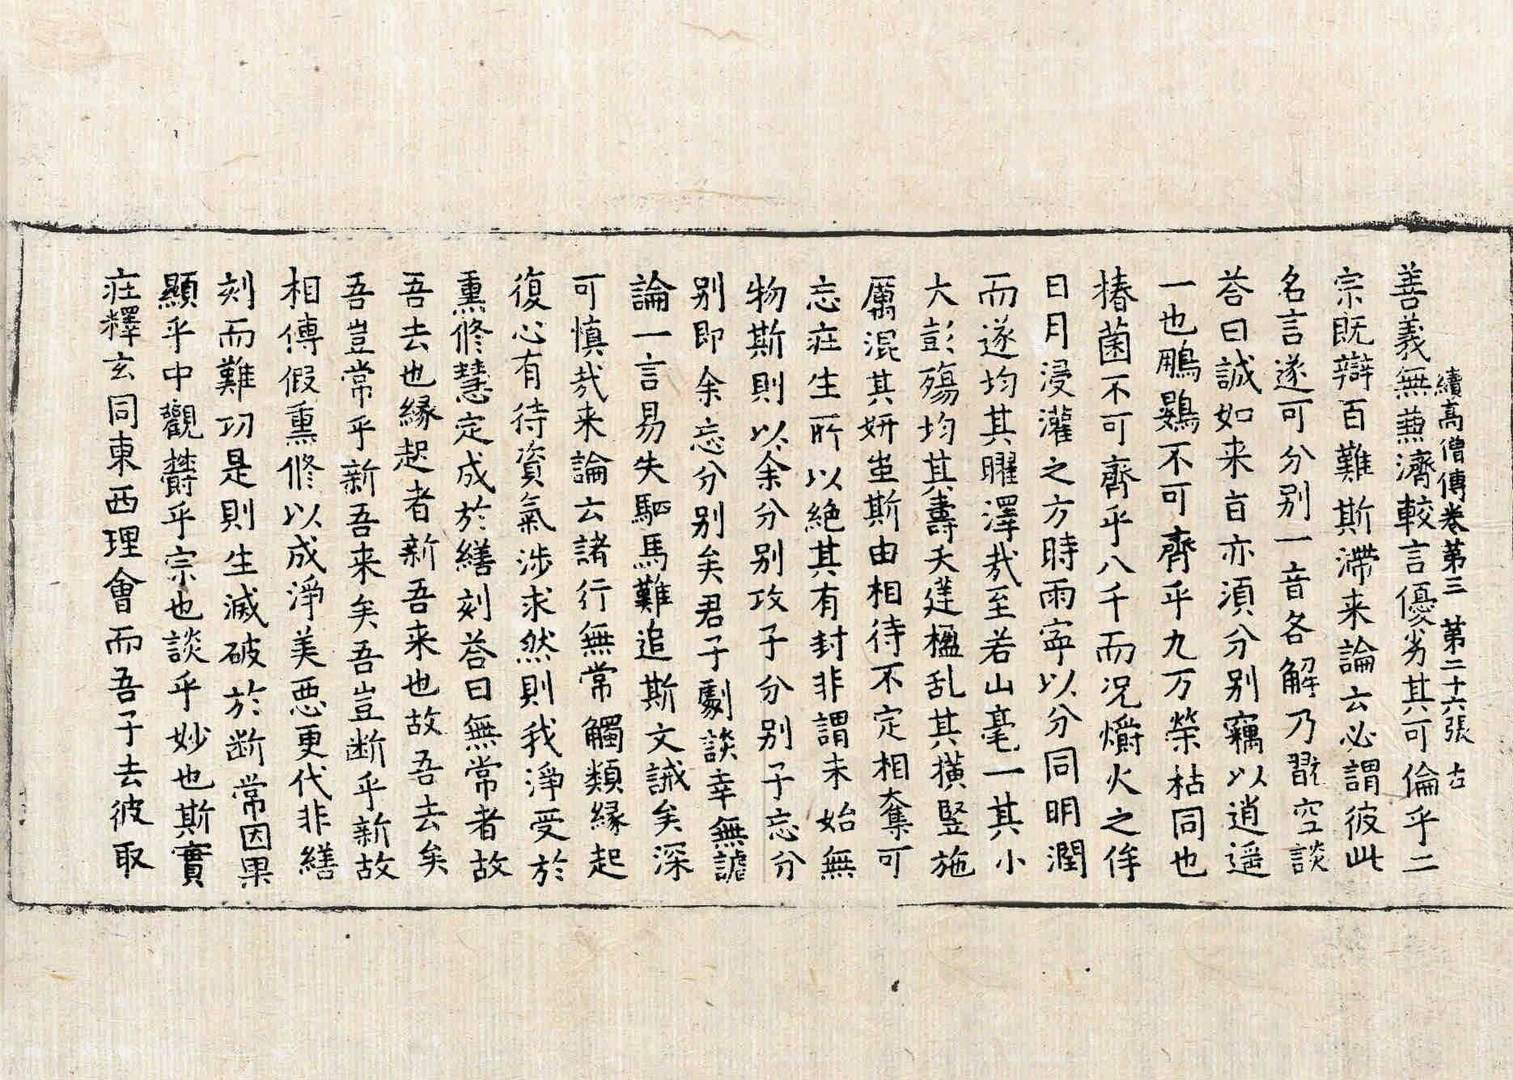 善義無兼濟較言優劣其可倫乎二
續高僧傳卷第三 第二十六張 古
宗既辯百難斯滯来論云必謂彼此
名言遂可分别一音各解乃翫空談
荅曰誠如来旨亦須分别竊以逍遥
一也鵬鷃不可齊乎九万榮枯同也
椿菌不可齊乎八千而况爝火之侔
日月浸灌之方時雨寧以分同明潤
而遂均其曜澤㢤至若山毫一其小
大彭殤均其壽夭莛楹乱其撗竪施
厲混其妍蚩斯由相待不定相奪可
忘莊生所以絶其有封非謂未始無
物斯則以余分别攻子分别子忘分
别即余忘分别矣君子劇談幸無謔
論一言易失駟馬難追斯文誡矣深
可慎㢤来論云諸行無常觸類緣起
復心有待資氣涉求然則我淨受於
熏修慧定成於繕刻荅曰無常者故
吾去也緣起者新吾来也故吾去矣
吾豈常乎新吾来矣吾豈断乎新故
相傳假熏修以成淨美惡更代非繕
刻而難功是則生滅破於断常因果
顯乎中觀欝乎宗也談乎妙也斯實
莊釋玄同東西理會而吾子去彼取